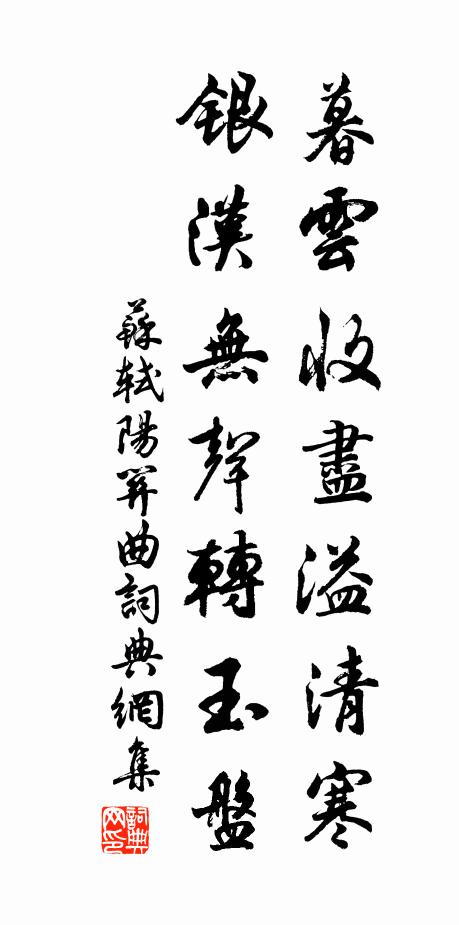 暮雲收盡溢清寒
銀漢無聲轉玉盤
蘇軾陽關曲詞典網集
詞典网印